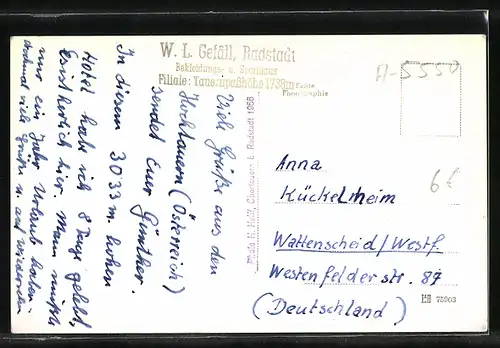 W. L. Gefäll, Radstadt
Bekleidungs- u. Sporthaus
Filiale: Tauernpaßhöhe 1738m
Echte
Photographie
A-5550
6€
Viele Grüße aus den
Hochtauern (Österreich)
sendet Euer Günther.
In diesem 3033 m. hohen
Hotel hab ich 8 Tage gelebt,
Es ist herrlich hier. Mann müßte
nur ein Jahr Urlaub haben.
nochmal viele Grüße u. auf wiedersehn
Radstadt 1956
Anna
Kückelheim
Wattenscheid/Westf.
Westenfelderstr. 87
(Deutschland)
75903